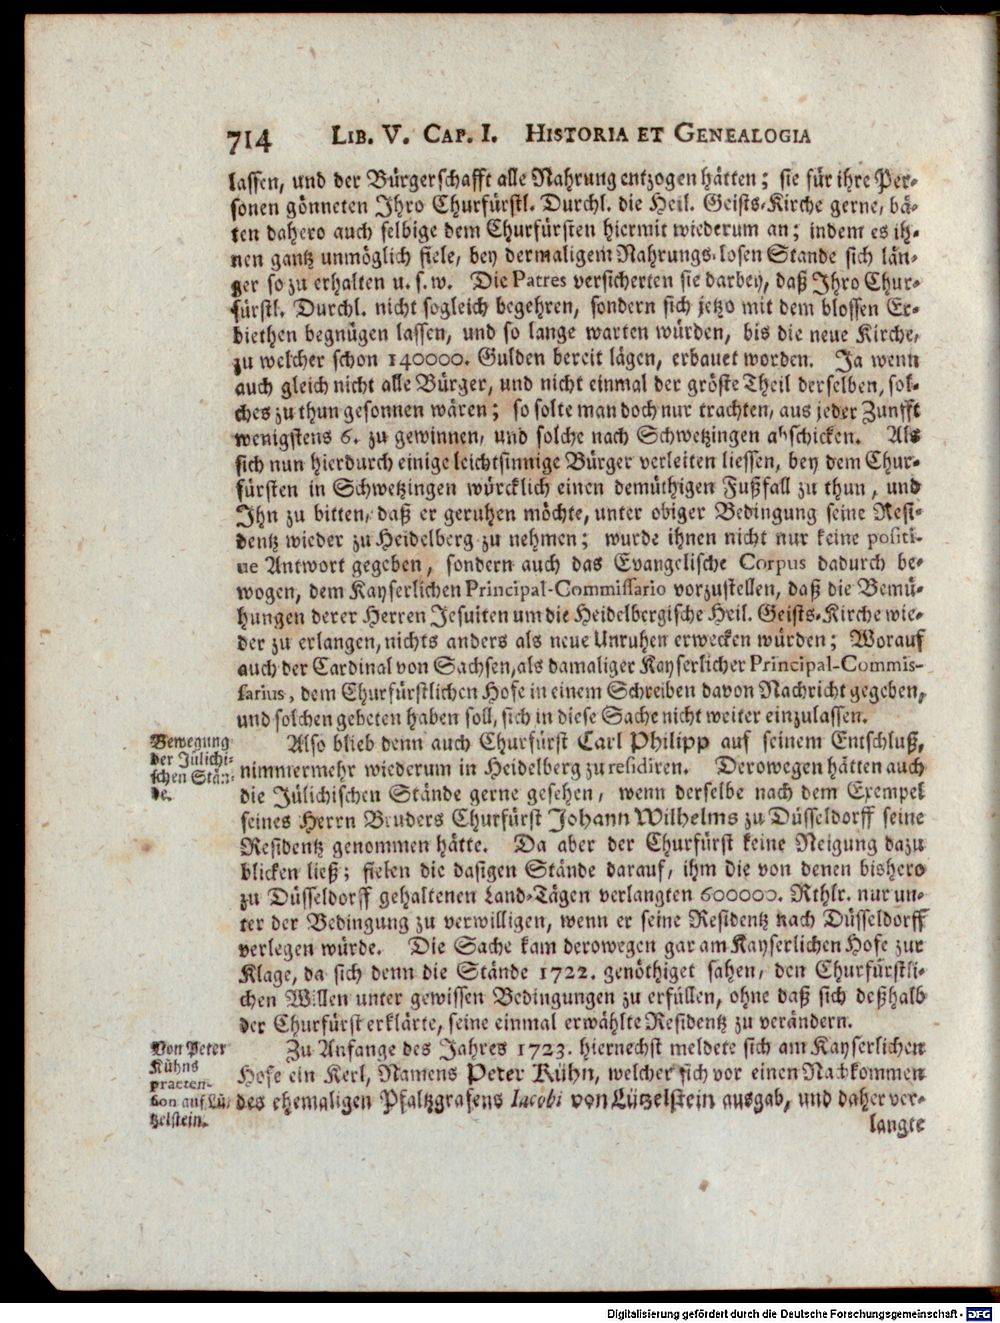 714 LIB. V. CAP. I. HISTORIA ET GENEALOGIA
lassen, und der Bürgerschafft alle Nahrung entzogen hätten; sie für ihre Per-
sonen gönneten Ihro Churfürstl. Durchl. die Heil. Geists-Kirche gerne, bä-
ten dahero auch selbige dem Churfürsten hiermit wiederum an; indem es ih-
nen gantz unmöglich fiele, bey dermaligem Nahrungs-losen Stande sich län-
ger so zu erhalten u. s. w. Die Patres versicherten sie darbey, daß Ihro Chur-
fürstl. Durchl. nicht sogleich begehren, sondern sich jetzo mit dem blossen Er-
biethen begnügen lassen, und so lange warten würden, bis die neue Kirche,
zu welcher schon 140000. Gulden bereit lägen, erbauet worden. Ja wenn
auch gleich nicht alle Bürger, und nicht einmal der gröste Theil derselben, sol-
ches zu thun gesonnen wären; so solte man doch nur trachten, aus jeder Zunfft
wenigstens 6. zu gewinnen, und solche nach Schwetzingen abschicken. Als
sich nun hierdurch einige leichtsinnige Bürger verleiten liessen, bey dem Chur-
fürsten in Schwetzingen würcklich einen demüthigen Fußfall zu thun, und
Ihn zu bitten, daß er geruhen möchte, unter obiger Bedingung seine Resi-
dentz wieder zu Heidelberg zu nehmen; wurde ihnen nicht nur keine positi-
ve Antwort gegeben, sondern auch das Evangelische Corpus dadurch be-
wogen, dem Kayserlichen Principal-Commissario vorzustellen, daß die Bemü-
hungen derer Herren Jesuiten um die Heidelbergische Heil. Geists-Kirche wie-
der zu erlangen, nichts anders als neue Unruhen erwecken würden; Worauf
auch der Cardinal von Sachsen, als damaliger Kayserlicher Principal-Commis-
sarius, dem Churfürstlichen Hofe in einem Schreiben davon Nachricht gegeben,
und solchen gebeten haben soll, sich in diese Sache nicht weiter einzulassen.
Bewegung
der Jülichi-
schen Stän-
de.
Also blieb denn auch Churfürst Carl Philipp auf seinem Entschluß,
nimmermehr wiederum in Heidelberg zu residiren. Derowegen hätten auch
die Jülichischen Stände gerne gesehen, wenn derselbe nach dem Exempel
seines Herrn Bruders Churfürst Johann Wilhelms zu Düsseldorff seine
Residentz genommen hätte. Da aber der Churfürst keine Neigung dazu
blicken ließ; fielen die dasigen Stände darauf, ihm die von denen bishero
zu Düsseldorff gehaltenen Land-Tägen verlangten 600000. Rthlr. nur un-
ter der Bedingung zu verwilligen, wenn er seine Residentz nach Düsseldorff
verlegen würde. Die Sache kam derowegen gar am Kayserlichen Hofe zur
Klage, da sich denn die Stände 1722. genöthiget sahen, den Churfürstli-
chen Willen unter gewissen Bedingungen zu erfüllen, ohne daß sich deßhalb
der Churfürst erklärte, seine einmal erwählte Residentz zu verändern.
Von Peter
Kühns
praeten-
sion auf Lü-
tzelstein.
Zu Anfange des Jahres 1723. hiernechst meldete sich am Kayserlichen
Hofe ein Kerl, Namens Peter Kühn, welcher sich vor einen Nachkommen
des ehemaligen Pfaltzgrafens Iacobi von Lützelstein ausgab, und daher ver-
langte
Digitalisierung gefördert durch die Deutsche Forschungsgemeinschaft - DFG